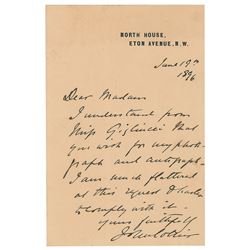 NORTH HOUSE,
ETON AVENUE, N.W.
June 19th
1896
Dear Madam
I understand from
Miss Gigliucci that
you wish for my photo-
graph and autograph.
I am much flattered
at this request & hasten
to comply with it.
yours faithfully
John Collier